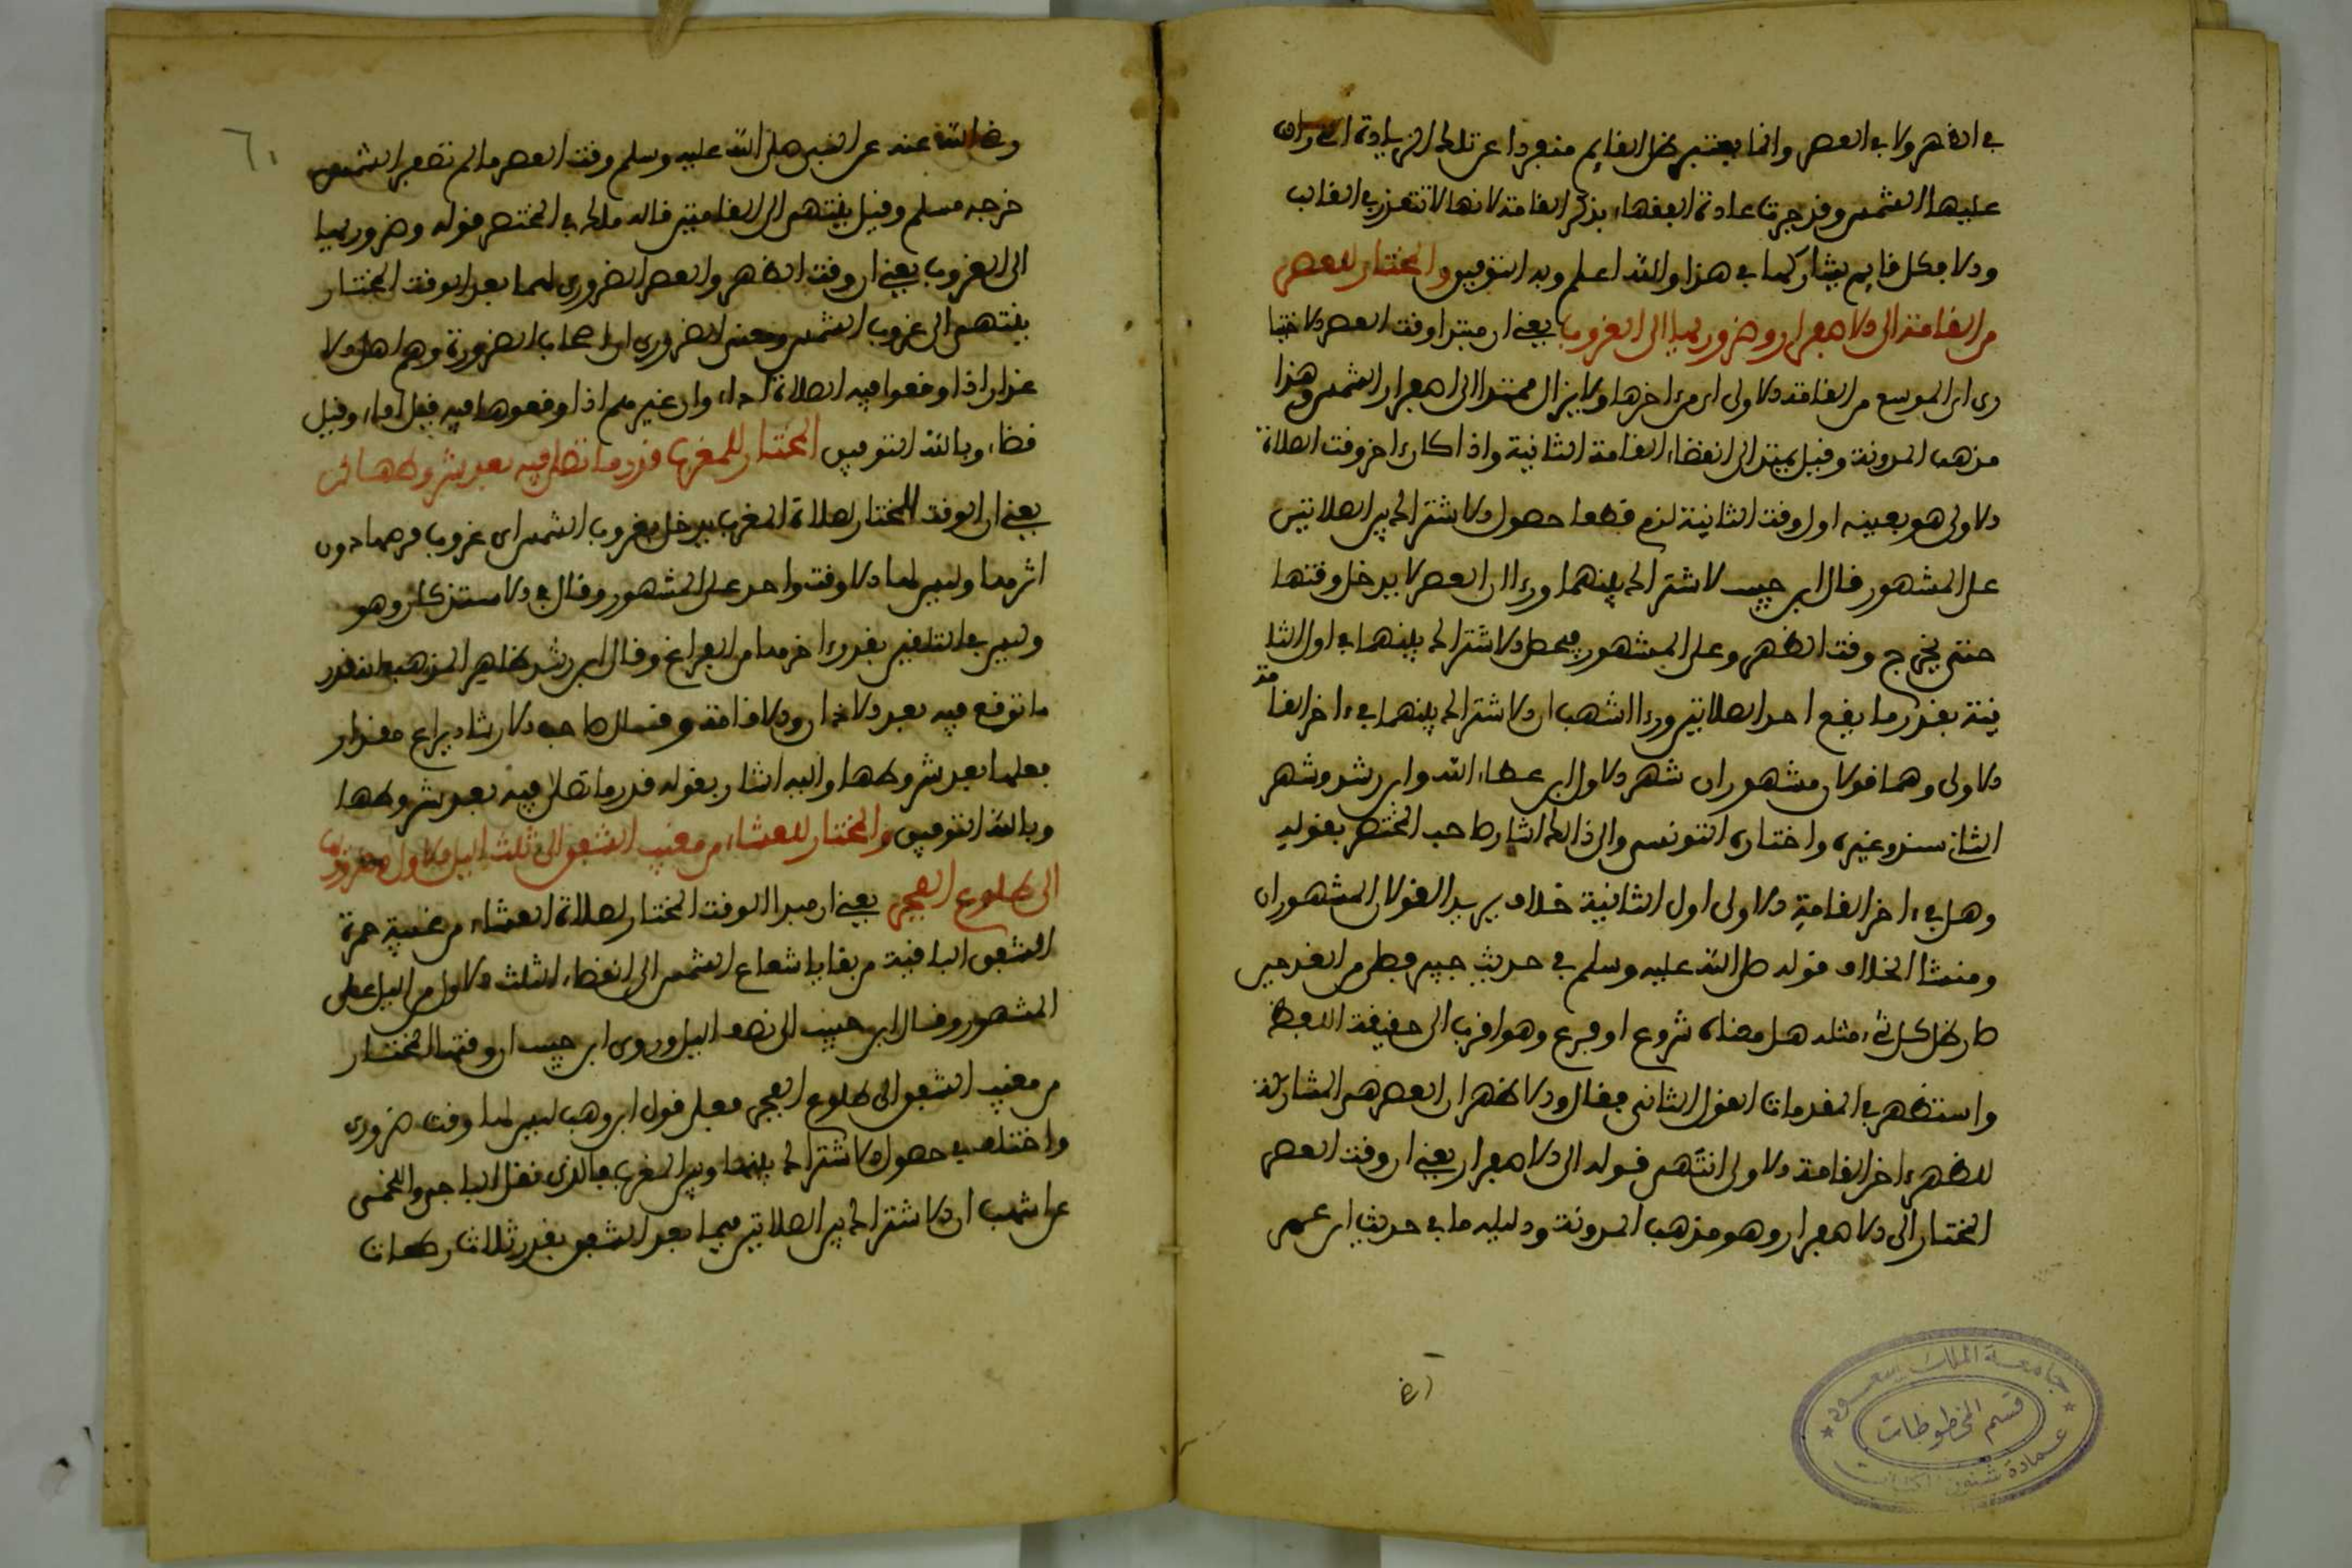 في الظهر ولا في العصر وانما يعتبر ظل القايم منفردا عن تلك الزيادة التي زالت
عليها الشمس وقد جرت عادة الفقهاء بذكر القامة لانها لا تتعذر في الغالب
والا فكل قايم يشاركها في هذا والله اعلم وبه التوفيق والمختار للعصر
من القامة الى الاصفرار وضروريها الى الغروب يعني ان مبتدا وقت العصر الاختيا
ري اي الموسع من القامة الاولى اي من ءاخرها ولا يزال ممتدا الى اصفرار الشمس وهذا
مذهب المدونة وقيل يمتد الى انقضاء القامة الثانية واذا كان ءاخر وقت الصلاة
الاولى هو بعينه اول وقت الثانية لزم قطعا حصول الاشتراك بين الصلاتين
على المشهور قال ابن حبيب لا اشتراك بينهما وراى ان العصر لا يدخل وقتها
حتى يخرج وقت الظهر وعلى المشهور فيحصل الاشتراك بينهما في اول الثا
نية بقدر ما يقع احد الصلاتين وراى اشهب ان الاشتراك بينهما في ءاخر القامة
الاولى وهما قولان مشهوران شهر الاول ابن عطاء الله وابن رشد وشهر
الثاني سند وغيره واختاره التونسي والى ذالك اشار صاحب المختصر بقوله
وهل في ءاخر القامة الاولى او اول الثانية خلاف يريد القولان المشهوران
ومنشا الخلاف قوله صلى الله عليه وسلم في حديث جبريل فصلى من الغد حين
صار ظل كل شيء مثله هل معناه شروع او فرغ وهو اقرب الى حقيقة اللفظ
واستظهر في المقدمات القول الثاني فقال والاظهر ان العصر هي المشاركة
للظهر ءاخر القامة الاولى انتهى قوله الى الاصفرار يعني ان وقت العصر
المختار الى الاصفرار وهو مذهب المدونة ودليله ما في حديث ابن عمر
جامعة الملك سعود
قسم المخطوطات
عمادة شئون المكتبات
٦٠
رضي الله عنه عن النبي صلى الله عليه وسلم وقت العصر ما لم تصفر الشمس
خرجه مسلم وقيل ينتهي الى القامتين قاله مالك في المختصر قوله وضروريها
الى الغروب يعني ان وقت الظهر والعصر الضروري لهما بعد الوقت المختار
ينتهي الى غروب الشمس ومعنى الضروري اي اصحاب الضرورة وهم اهل الا
عذار اذا اوقعوا فيه الصلاة اداء وان غيرهم اذا اوقعوها فيه فقيل اداء وقيل
قضاء وبالله التوفيق المختار للمغرب قدر ما تصلى فيه بعد شروطها
يعني ان الوقت المختار لصلاة المغرب يدخل بغروب الشمس اي غروب قرصها دون
اثرها وليس لها الا وقت واحد على المشهور وقال في الاستذكار وهو
وليس بالتلقين يقدر ءاخرها من الفراغ وقال ابن رشد ظاهر المذهب انه قدر
ما توقع فيه بعد الاذان والاقامة وقال صاحب الارشاد يراعى مقدار
فعلها بعد شروطها واليه اشار بقوله قدر ما تصلى فيه بعد شروطها
وبالله التوفيق والمختار للعشاء من مغيب الشفق الى ثلث اليل الاول وضروريها
الى طلوع الفجر يعني ان مبدا الوقت المختار لصلاة العشاء من غيبة حمرة
الشفق الباقية من بقايا شعاع الشمس الى انقضاء الثلث الاول من اليل على
المشهور وقال ابن حبيب الى نصف اليل وروى ابن حبيب ان وقتها المختار
من مغيب الشفق الى طلوع الفجر فعلى قول ابن وهب ليس لها وقت ضروري
واختلف في حصول الاشتراك بينها وبين المغرب فالذي نقل الباجي واللخمي
عن اشهب ان الاشتراك بين الصلاتين فيما بعد الشفق بقدر ثلاث ركعات